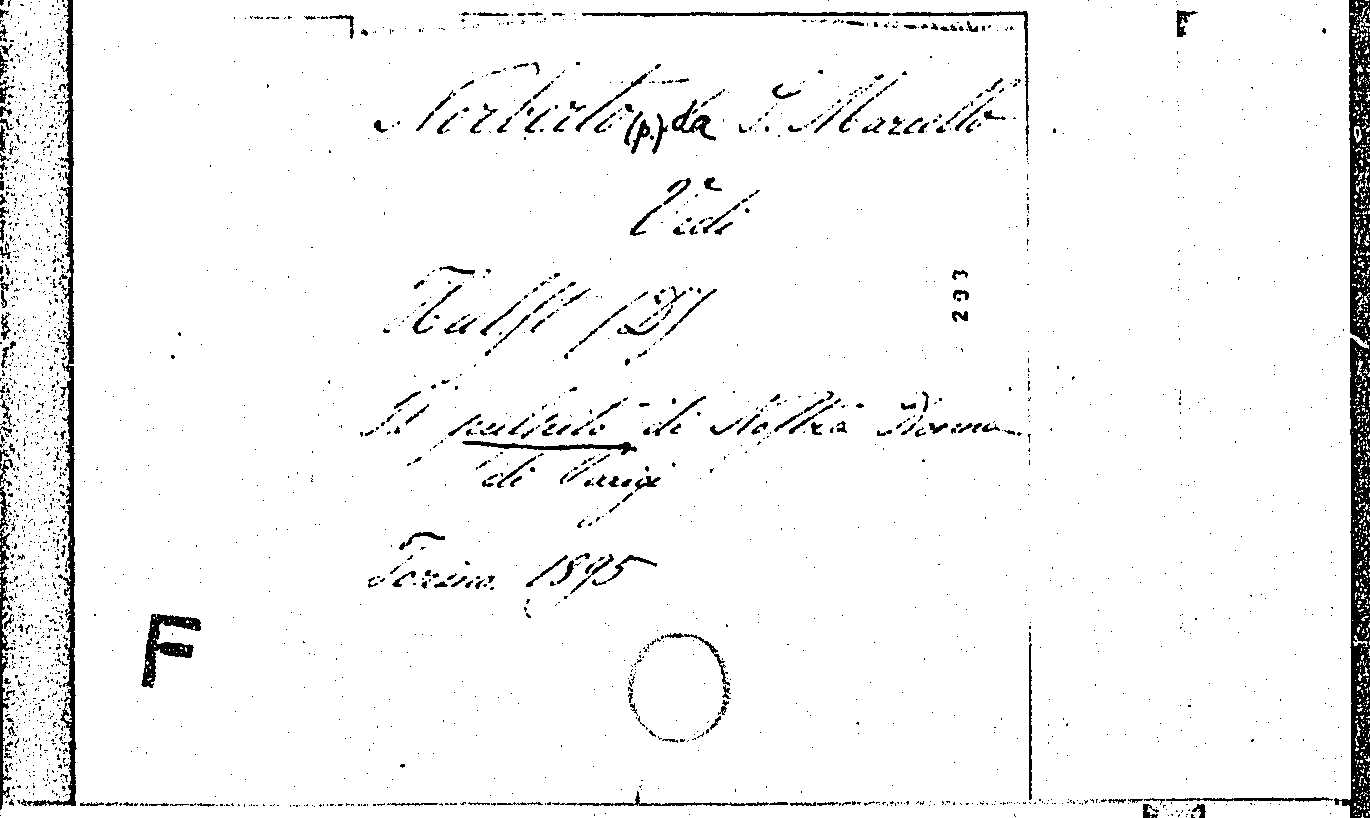 Norberto (p.) da S. Marcello
Vedi
(D)
293
Il pulpito di Nostra Donna
di Parigi
Torino. 1895
F